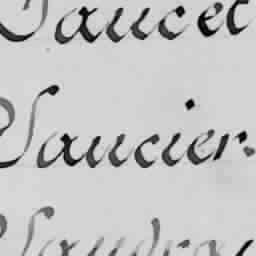 Saucet
Saucier.